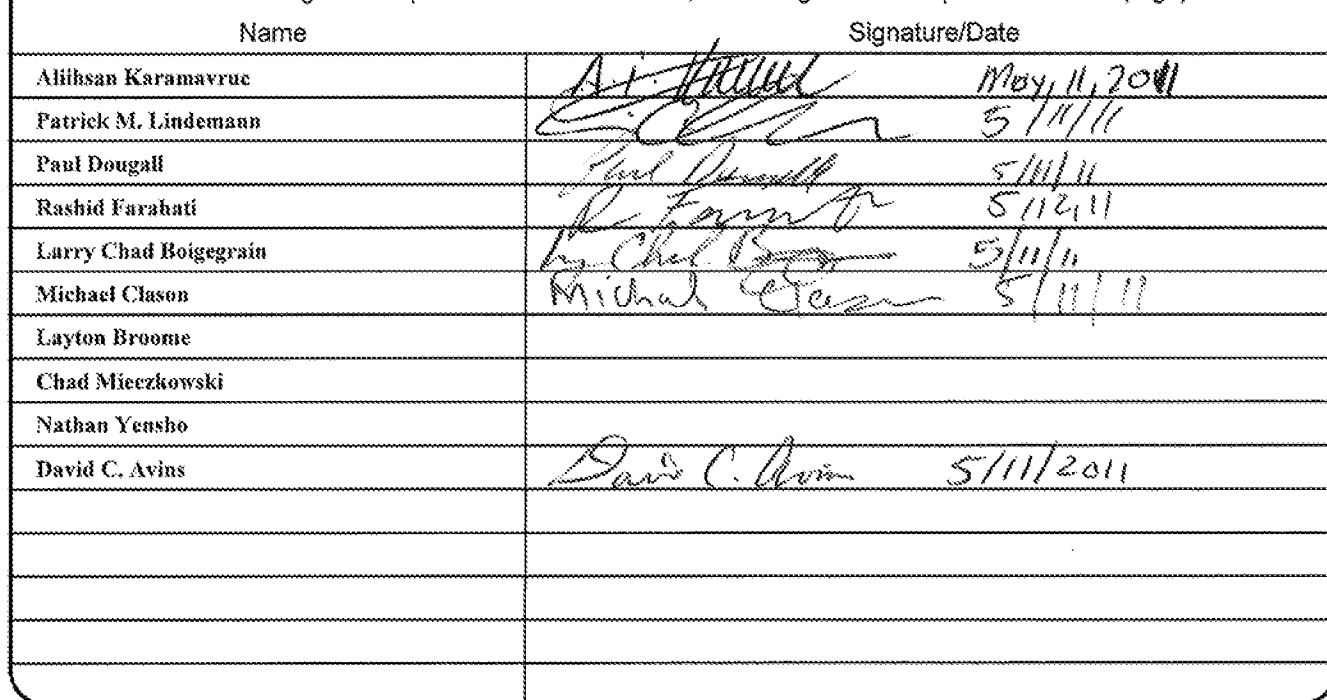 Name Signature/Date
Aliihsan Karamavruc A.i May, 11, 2011
Patrick M. Lindemann 5/11/11
Paul Dougall Paul Dougall 5/11/11
Rashid Farahati 5/12/11
Larry Chad Boigegrain Chad 5/11/11
Michael Clason Michael Clason 5/11/11
Layton Broome
Chad Mieczkowski
Nathan Yensho
David C. Avins David C. Avins 5/11/2011